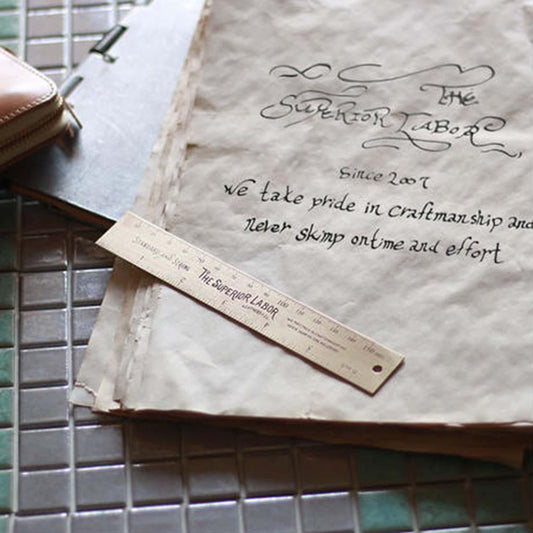 THE
SUPERIOR LABOR
Since 2007
We take pride in craftmanship and
never skimp on time and effort
STANDARD AND STRONG
THE SUPERIOR LABOR